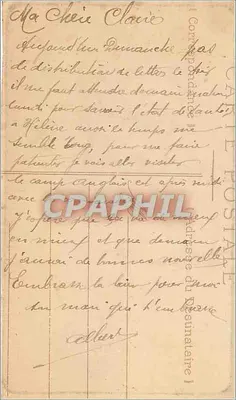 Ma Chère Claire
Aujourd'hui Dimanche pas
de distribution de lettre le soir
il me faut attendre demain matin
lundi pour savoir l'état de santé
à Hélène aussi le temps me
semble long, pour me faire
patienter je vais aller visiter
le camp anglais cet après midi
avec
J'espère que va de mieux
en mieux et que demain
j'aurai de bonnes nouvelles
Embrasse la bien pour moi
ton mari qui t'embrasse
Albert
Correspondance
Adresse du Destinataire
CPAPHIL